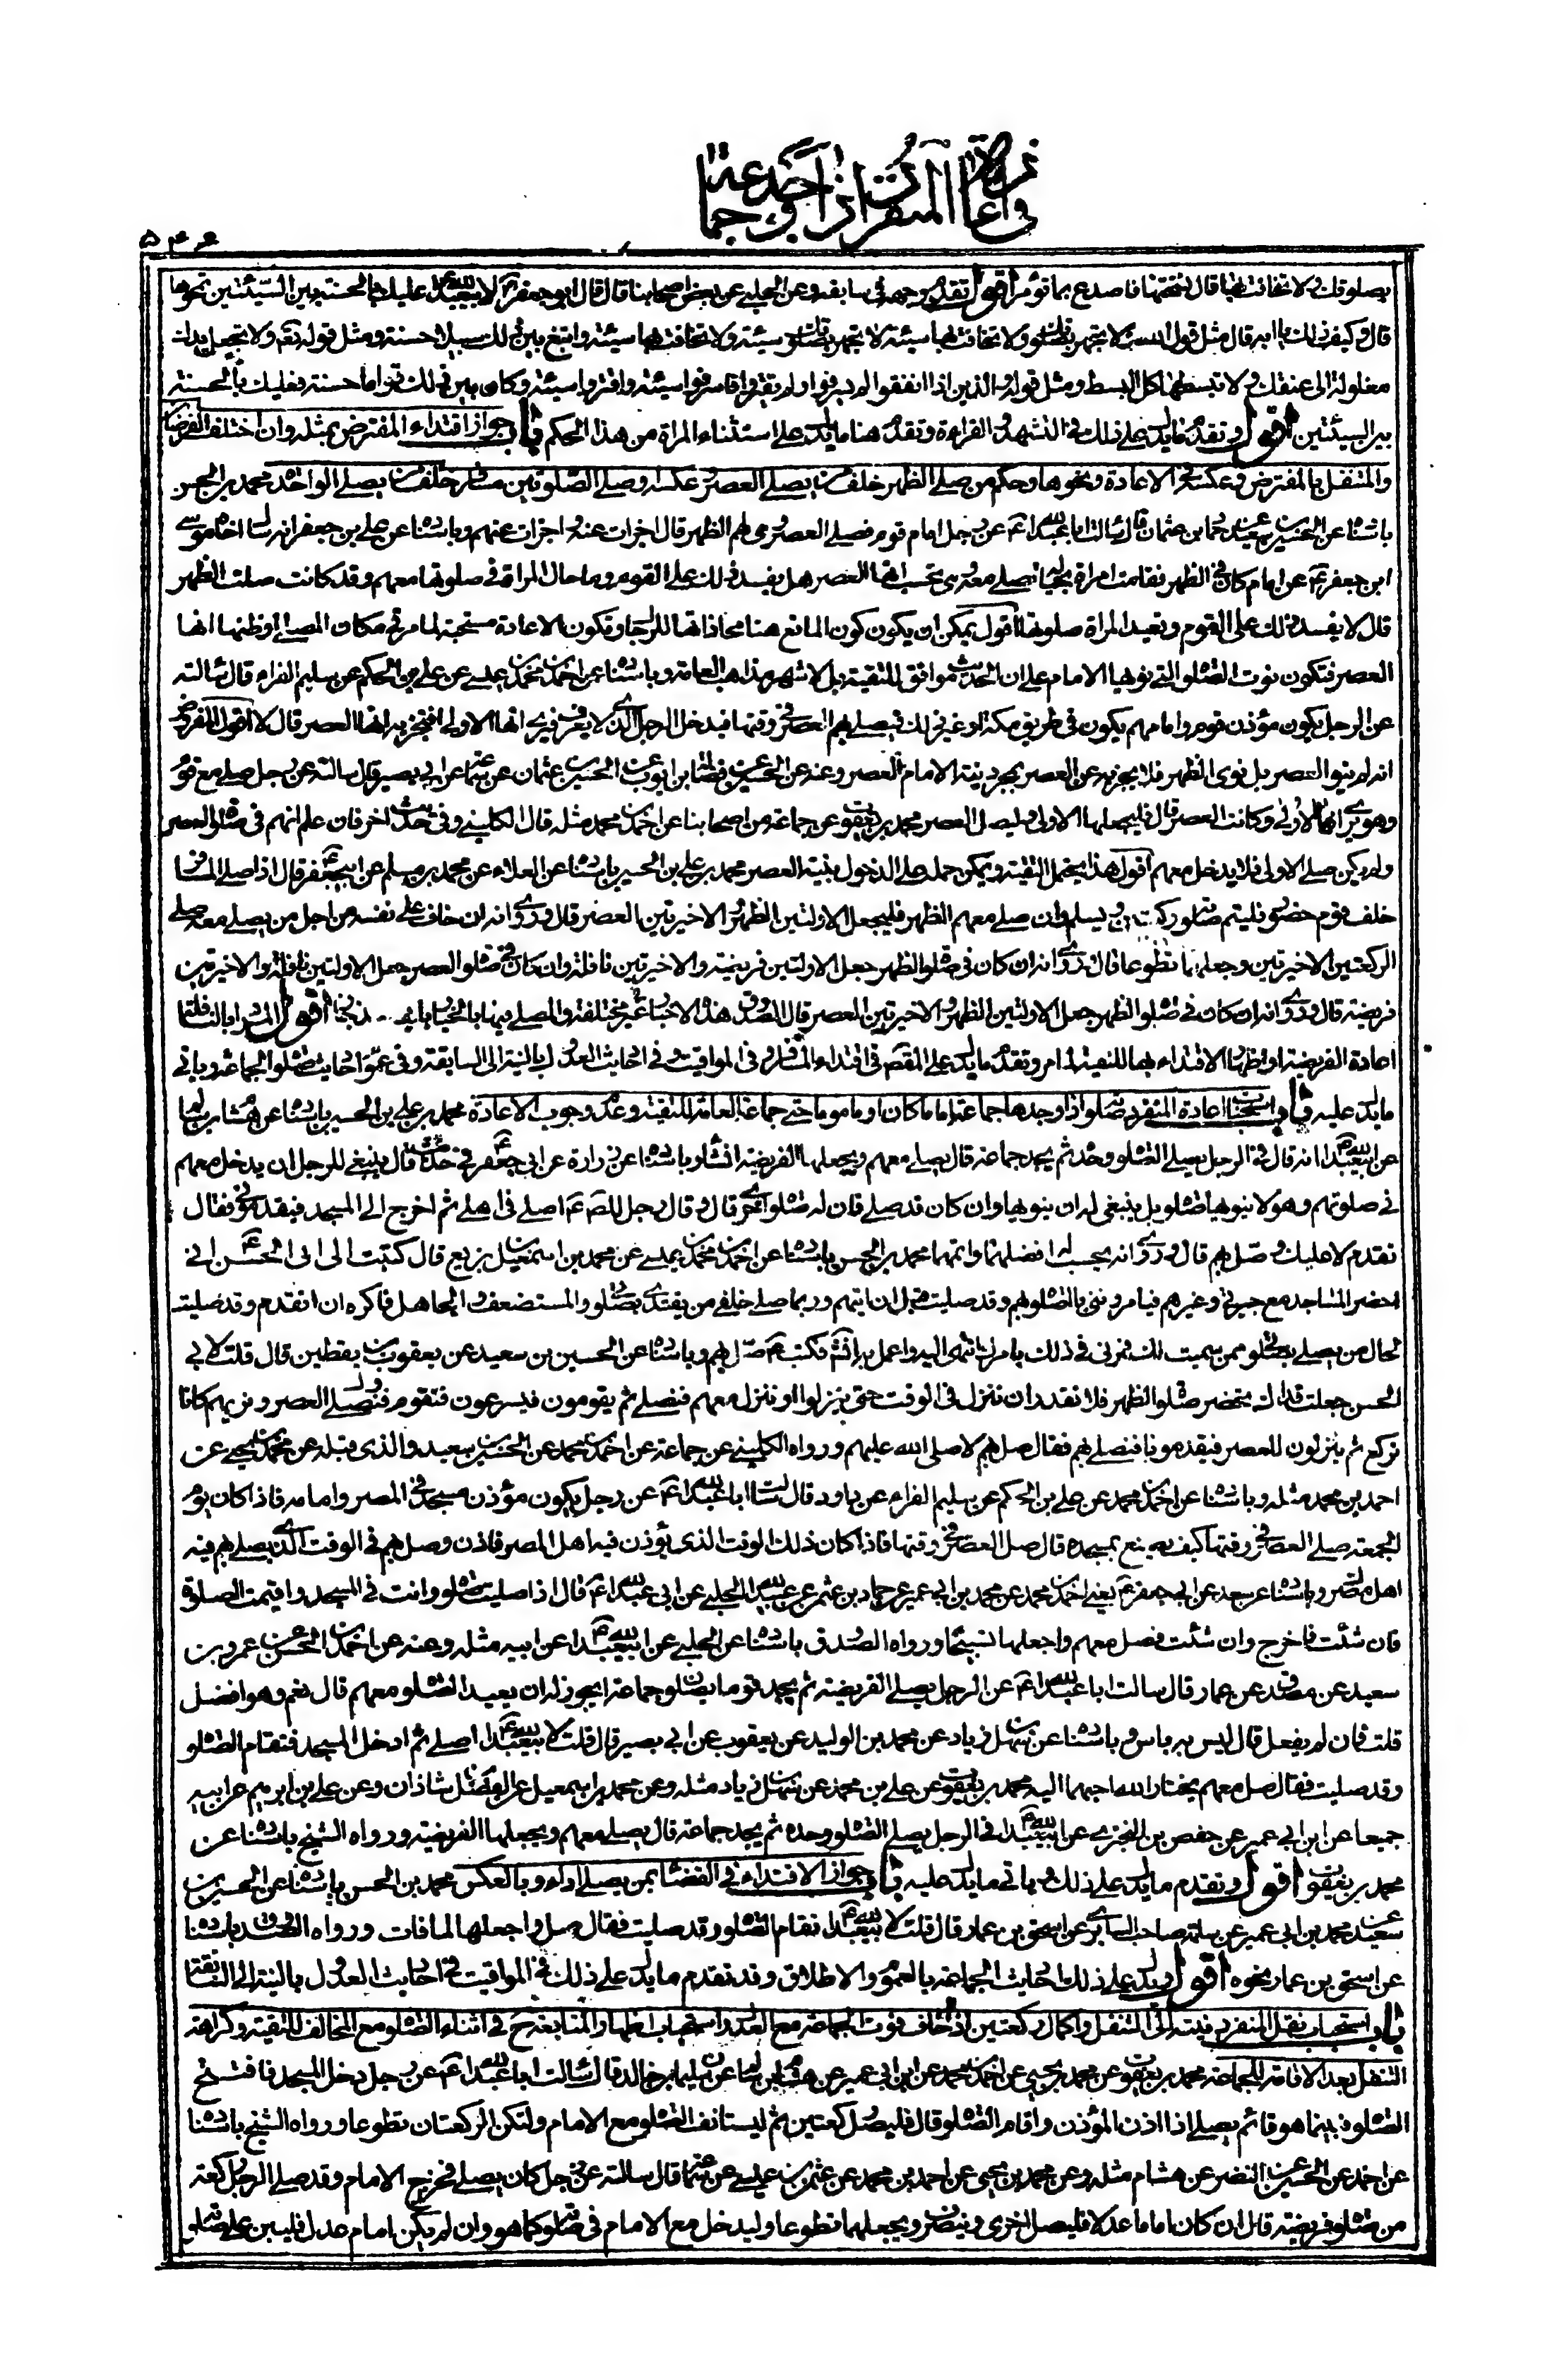 في اعادة المنفرد اذا وجد جماعة
۵۴۶
بصلوتك ولا تخافت بها قال نسختها فاصدع بما تؤمر اقول تقدم وجهه في سابقه وعن الحلبي عن بعض اصحابنا قال قال ابو جعفر ع لابي عبد الله ع عليك بالحسنة بين السيئتين تمحوها
قال وكيف ذلك يا ابه قال مثل قول الله ولا تجهر بصلوتك ولا تخافت بها سيئة لا تجهر بصلوتك سيئة ولا تخافت بها سيئة وابتغ بين ذلك سبيلا حسنة ومثل قوله تع ولا تجعل يدك
مغلولة الى عنقك ولا تبسطها كل البسط ومثل قوله والذين اذا انفقوا لم يسرفوا ولم يقتروا فاسرفوا سيئة واقتروا سيئة وكان بين ذلك قواما حسنة فعليك بالحسنة
بين السيئتين اقول وتقدم ما يدل على ذلك في التشهد والقراءة وتقدم هنا ما يدل على استثناء المراة من هذا الحكم باب جواز اقتداء المفترض بمثله وان اختلف الفرضان
والمتنفل بالمفترض وعكسه في الاعادة ونحوها وحكم من صلى الظهر خلف من يصلي العصر وعكسه وصلى الصلوتين مسافر خلف من يصلي الواحدة محمد بن الحسن
باسناده عن الحسين بن سعيد عن حماد بن عثمان قال سالت ابا عبد الله ع عن رجل امام قوم فصلى العصر وهي لهم الظهر قال اجزات عنه واجزات عنهم وباسناده عن علي بن جعفر انه سال اخاه موسى
ابن جعفر ع عن امام كان في الظهر فقامت امراة بحياله تصلي معه وهي تحسب انها العصر هل يفسد ذلك على القوم وما حال المراة في صلوتها معهم وقد كانت صلت الظهر
قال لا يفسد ذلك على القوم وتعيد المراة صلوتها اقول يمكن ان يكون المانع هنا محاذاتها للرجال وتكون الاعادة مستحبة لما مر في مكان المصلي او ظنها انها
العصر فتكون نوت الصلوة التي نوهيا الامام على ان الحديث موافق للتقية بل لاشهر مذاهب العامة وباسناده عن احمد بن محمد بن عيسى عن علي بن الحكم عن سليم الفراء قال سالته
عن الرجل يكون مؤذن قوم وامامهم يكون في طريق مكة او غير ذلك فيصلي بهم العصر في وقتها فيدخل الرجل الذي لا يعرف فيرى انها الاولى افتجزيه انها العصر قال لا اقول المفروض
انه لم ينو العصر بل نوى الظهر فلا يجزيه عن العصر بمجرد نية الامام العصر وعنه عن الحسين عن فضالة بن ايوب عن الحسين بن عثمان عن سماعة عن ابي بصير قال سالته عن رجل صلى مع قوم
وهو يرى انها الاولى وكانت العصر قال فليجعلها الاولى وليصل العصر محمد بن يعقوب عن جماعة من اصحابنا عن احمد بن محمد مثله قال الكليني وفي حديث اخر فان علم انهم في صلوة العصر
ولم يكن صلى الاولى فلا يدخل معهم اقول هذا يحتمل التقية ويمكن حمله على الدخول بنية العصر محمد بن علي بن الحسين باسناده عن العلاء عن محمد بن مسلم عن ابي جعفر ع قال اذا صلى المسافر
خلف قوم حضور فليتم صلوته ركعتين ويسلم وان صلى معهم الظهر فليجعل الاولتين الظهر والاخيرتين العصر قال وروي انه ان خاف على نفسه من اجل من يصلي معه صلى
الركعتين الاخيرتين وجعلهما تطوعا قال وروي انه ان كان في صلوة الظهر جعل الاولتين فريضة والاخيرتين نافلة وان كان في صلوة العصر جعل الاولتين نافلة والاخيرتين
فريضة قال وروي انه ان كان في صلوة الظهر جعل الاولتين الظهر والاخيرتين العصر قال الصدوق هذه الاخبار غير مختلفة والمصلي فيها بالخيار بايها اخذ جاز اقول المراد بالنافلة
اعادة الفريضة او اظهار الاقتداء بها للتقية لما مر وتقدم ما يدل على المقصود في اقتداء المسافر وفي المواقيت في احاديث العدول بالنية الى السابقة وفي عموم احاديث صلوة الجماعة وياتي
ما يدل عليه باب استحباب اعادة المنفرد صلوته اذا وجدها جماعة اماما كان او ماموما حتى جماعة العامة للتقية وعدم وجوب الاعادة محمد بن علي بن الحسين باسناده عن هشام بن سالم
عن ابي عبد الله ع انه قال في الرجل يصلي الصلوة وحده ثم يجد جماعة قال يصلي معهم ويجعلها الفريضة ان شاء وباسناده عن زرارة عن ابي جعفر ع في حديث قال لا ينبغي للرجل ان يدخل معهم
في صلوتهم وهو لا ينويها صلوة بل ينبغي له ان ينويها وان كان قد صلى فان له صلوة اخرى قال وقال رجل للصادق ع اصلي في اهلي ثم اخرج الى المسجد فيقدموني فقال
تقدم لا عليك وصل بهم قال وروي انه يحسب له افضلهما واتمهما محمد بن الحسن باسناده عن احمد بن محمد بن عيسى عن محمد بن اسمعيل بن بزيع قال كتبت الى ابي الحسن ع اني
احضر المساجد مع جيرتي وغيرهم فيامروني بالصلوة بهم وقد صليت قبل ان اتيهم وربما صلى خلفي من يقتدي بصلوتي والمستضعف والجاهل فاكره ان اتقدم وقد صليت
لحال من يصلي بصلوتي ممن سميت لك فمرني في ذلك بامرك انتهي اليه واعمل به انشاء الله فكتب ع صل بهم وباسناده عن الحسين بن سعيد عن يعقوب بن يقطين قال قلت لابي
الحسن جعلت فداك تحضر صلوة الظهر فلا نقدر ان ننزل في الوقت حتى ينزلوا وننزل معهم فنصلي ثم يقومون فيسرعون فنقوم فنصلي العصر ونريهم كانا
نركع ثم ينزلون للعصر فيقدمونا فنصلي بهم فقال صل بهم لا صلى الله عليهم ورواه الكليني عن جماعة عن احمد بن محمد عن الحسين بن سعيد والذي قبله عن محمد بن يحيى عن
احمد بن محمد مثله وباسناده عن احمد بن محمد عن علي بن الحكم عن سليم الفراء عن داود قال سالت ابا عبد الله ع عن رجل يكون مؤذن مسجد في المصر وامامه فاذا كان يوم
الجمعة صلى العصر في وقتها كيف يصنع بمسجده قال صل العصر في وقتها فاذا كان ذلك الوقت الذي يؤذن فيه اهل المصر فاذن وصل بهم في الوقت الذي يصلي بهم فيه
اهل المصر وباسناده عن سعد عن ابي جعفر ع يعني احمد بن محمد عن محمد بن ابي عمير عن حماد بن عثمن عن عبيد الله الحلبي عن ابي عبد الله ع قال اذا صليت صلوة وانت في المسجد واقيمت الصلوة
فان شئت فاخرج وان شئت فصل معهم واجعلها تسبيحا ورواه الصدوق باسناده عن الحلبي عن ابي عبد الله ع عن ابيه مثله وعنه عن احمد بن الحسن عن عمرو بن
سعيد عن مصدق عن عمار قال سالت ابا عبد الله ع عن الرجل يصلي الفريضة ثم يجد قوما يصلون جماعة ايجوز له ان يعيد الصلوة معهم قال نعم وهو افضل
قلت فان لم يفعل قال ليس به باس وباسناده عن سهل بن زياد عن محمد بن الوليد عن يعقوب عن ابي بصير قال قلت لابي عبد الله ع اصلي ثم ادخل المسجد فتقام الصلوة
وقد صليت فقال صل معهم يختار الله احبهما اليه محمد بن يعقوب عن علي بن محمد عن سهل بن زياد مثله وعن محمد بن اسمعيل عن الفضل بن شاذان وعن علي بن ابرهيم عن ابيه
جميعا عن ابن ابي عمير عن حفص بن البختري عن ابي عبد الله ع في الرجل يصلي الصلوة وحده ثم يجد جماعة قال يصلي معهم ويجعلها الفريضة ورواه الشيخ باسناده عن
محمد بن يعقوب اقول وتقدم ما يدل على ذلك وياتي ما يدل عليه باب جواز الاقتداء في القضاء بمن يصلي اداء وبالعكس محمد بن الحسن باسناده عن الحسين بن
سعيد عن محمد بن ابي عمير عن سلمة صاحب السابري عن اسحق بن عمار قال قلت لابي عبد الله ع تقام الصلوة وقد صليت فقال صل واجعلها لما فات ورواه الصدوق باسناده
عن اسحق بن عمار نحوه اقول ويدل على ذلك احاديث الجماعة بالعموم والاطلاق وقد تقدم ما يدل على ذلك في المواقيت في احاديث العدول بالنية الى السابقة
باب استحباب نقل المنفرد نيته الى التنفل واكمال ركعتين اذا خاف فوت الجماعة مع العدل واستحباب اظهار المتابعة ح في اثناء الصلوة مع المخالف للتقية وكراهة
التنفل بعد الاقامة للجماعة محمد بن يعقوب عن محمد بن يحيى عن احمد بن محمد عن ابن ابي عمير عن هشام بن سالم عن سليمان بن خالد قال سالت ابا عبد الله ع عن رجل دخل المسجد فافتتح
الصلوة فبينما هو قائم يصلي اذا اذن المؤذن واقام الصلوة قال فليصل ركعتين ثم ليستانف الصلوة مع الامام ولتكن الركعتان تطوعا ورواه الشيخ باسناده
عن احمد عن الحسين عن النضر عن هشام مثله وعن محمد بن يحيى عن احمد بن محمد عن عثمن بن عيسى عن سماعة قال سالته عن رجل كان يصلي فخرج الامام وقد صلى الرجل ركعة
من صلوة فريضة قال ان كان اماما عدلا فليصل اخرى وينصرف ويجعلهما تطوعا وليدخل مع الامام في صلوته كما هو وان لم يكن امام عدل فليبن على صلوته